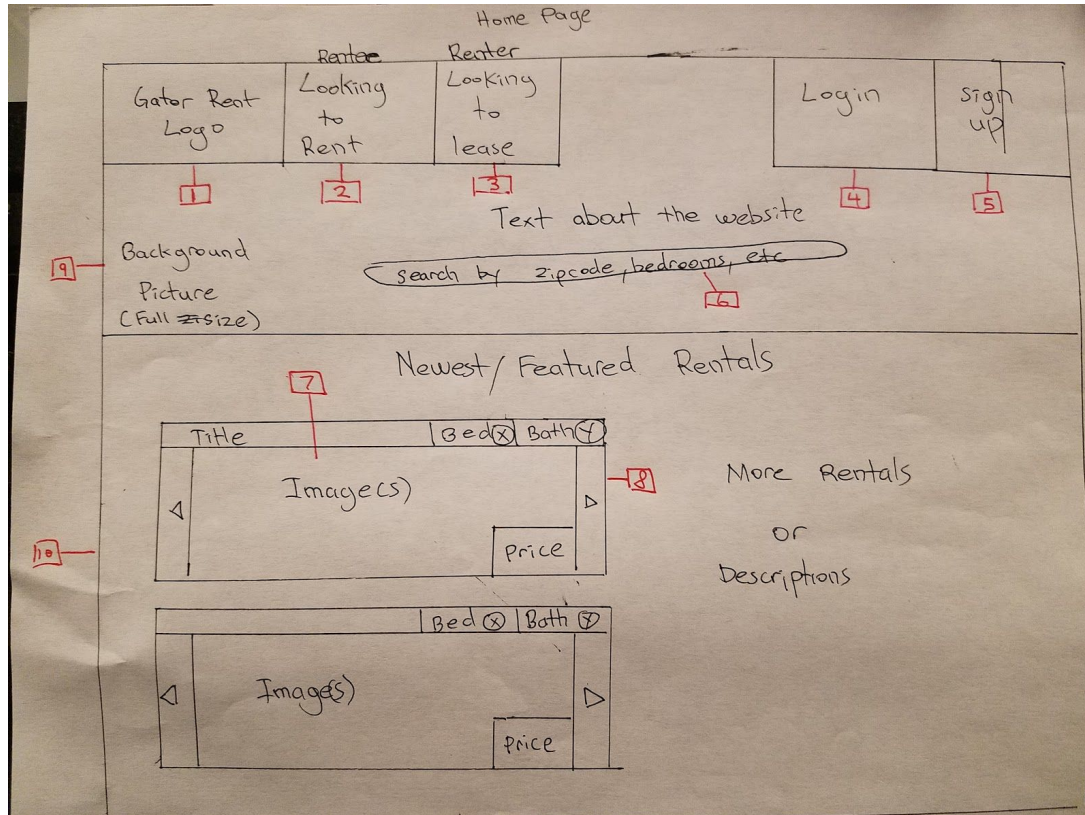 Home Page
Rentee
Renter
Gator Rent
Logo
Looking
to
Rent
Looking
to
lease
Login
Sign
up
1
2
3
4
5
Text about the website
9
Background
Picture
(Full size)
search by zipcode, bedrooms, etc
6
Newest/Featured Rentals
7
Title
Bed X
Bath Y
Image(s)
8
Price
More Rentals
or
Descriptions
10
Bed X
Bath Y
Image(s)
Price